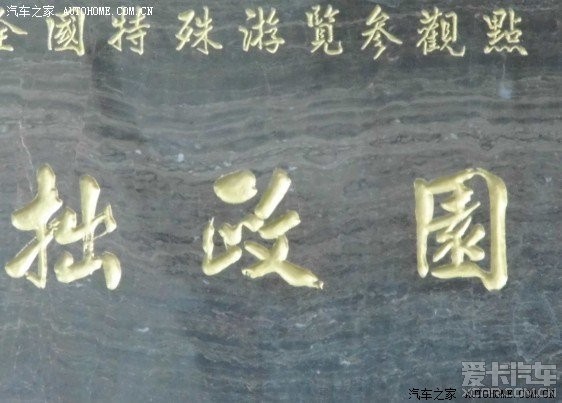 汽车之家 AUTOHOME.COM.CN
全國特殊游覽参觀點
拙政园
爱卡汽车
汽车之家